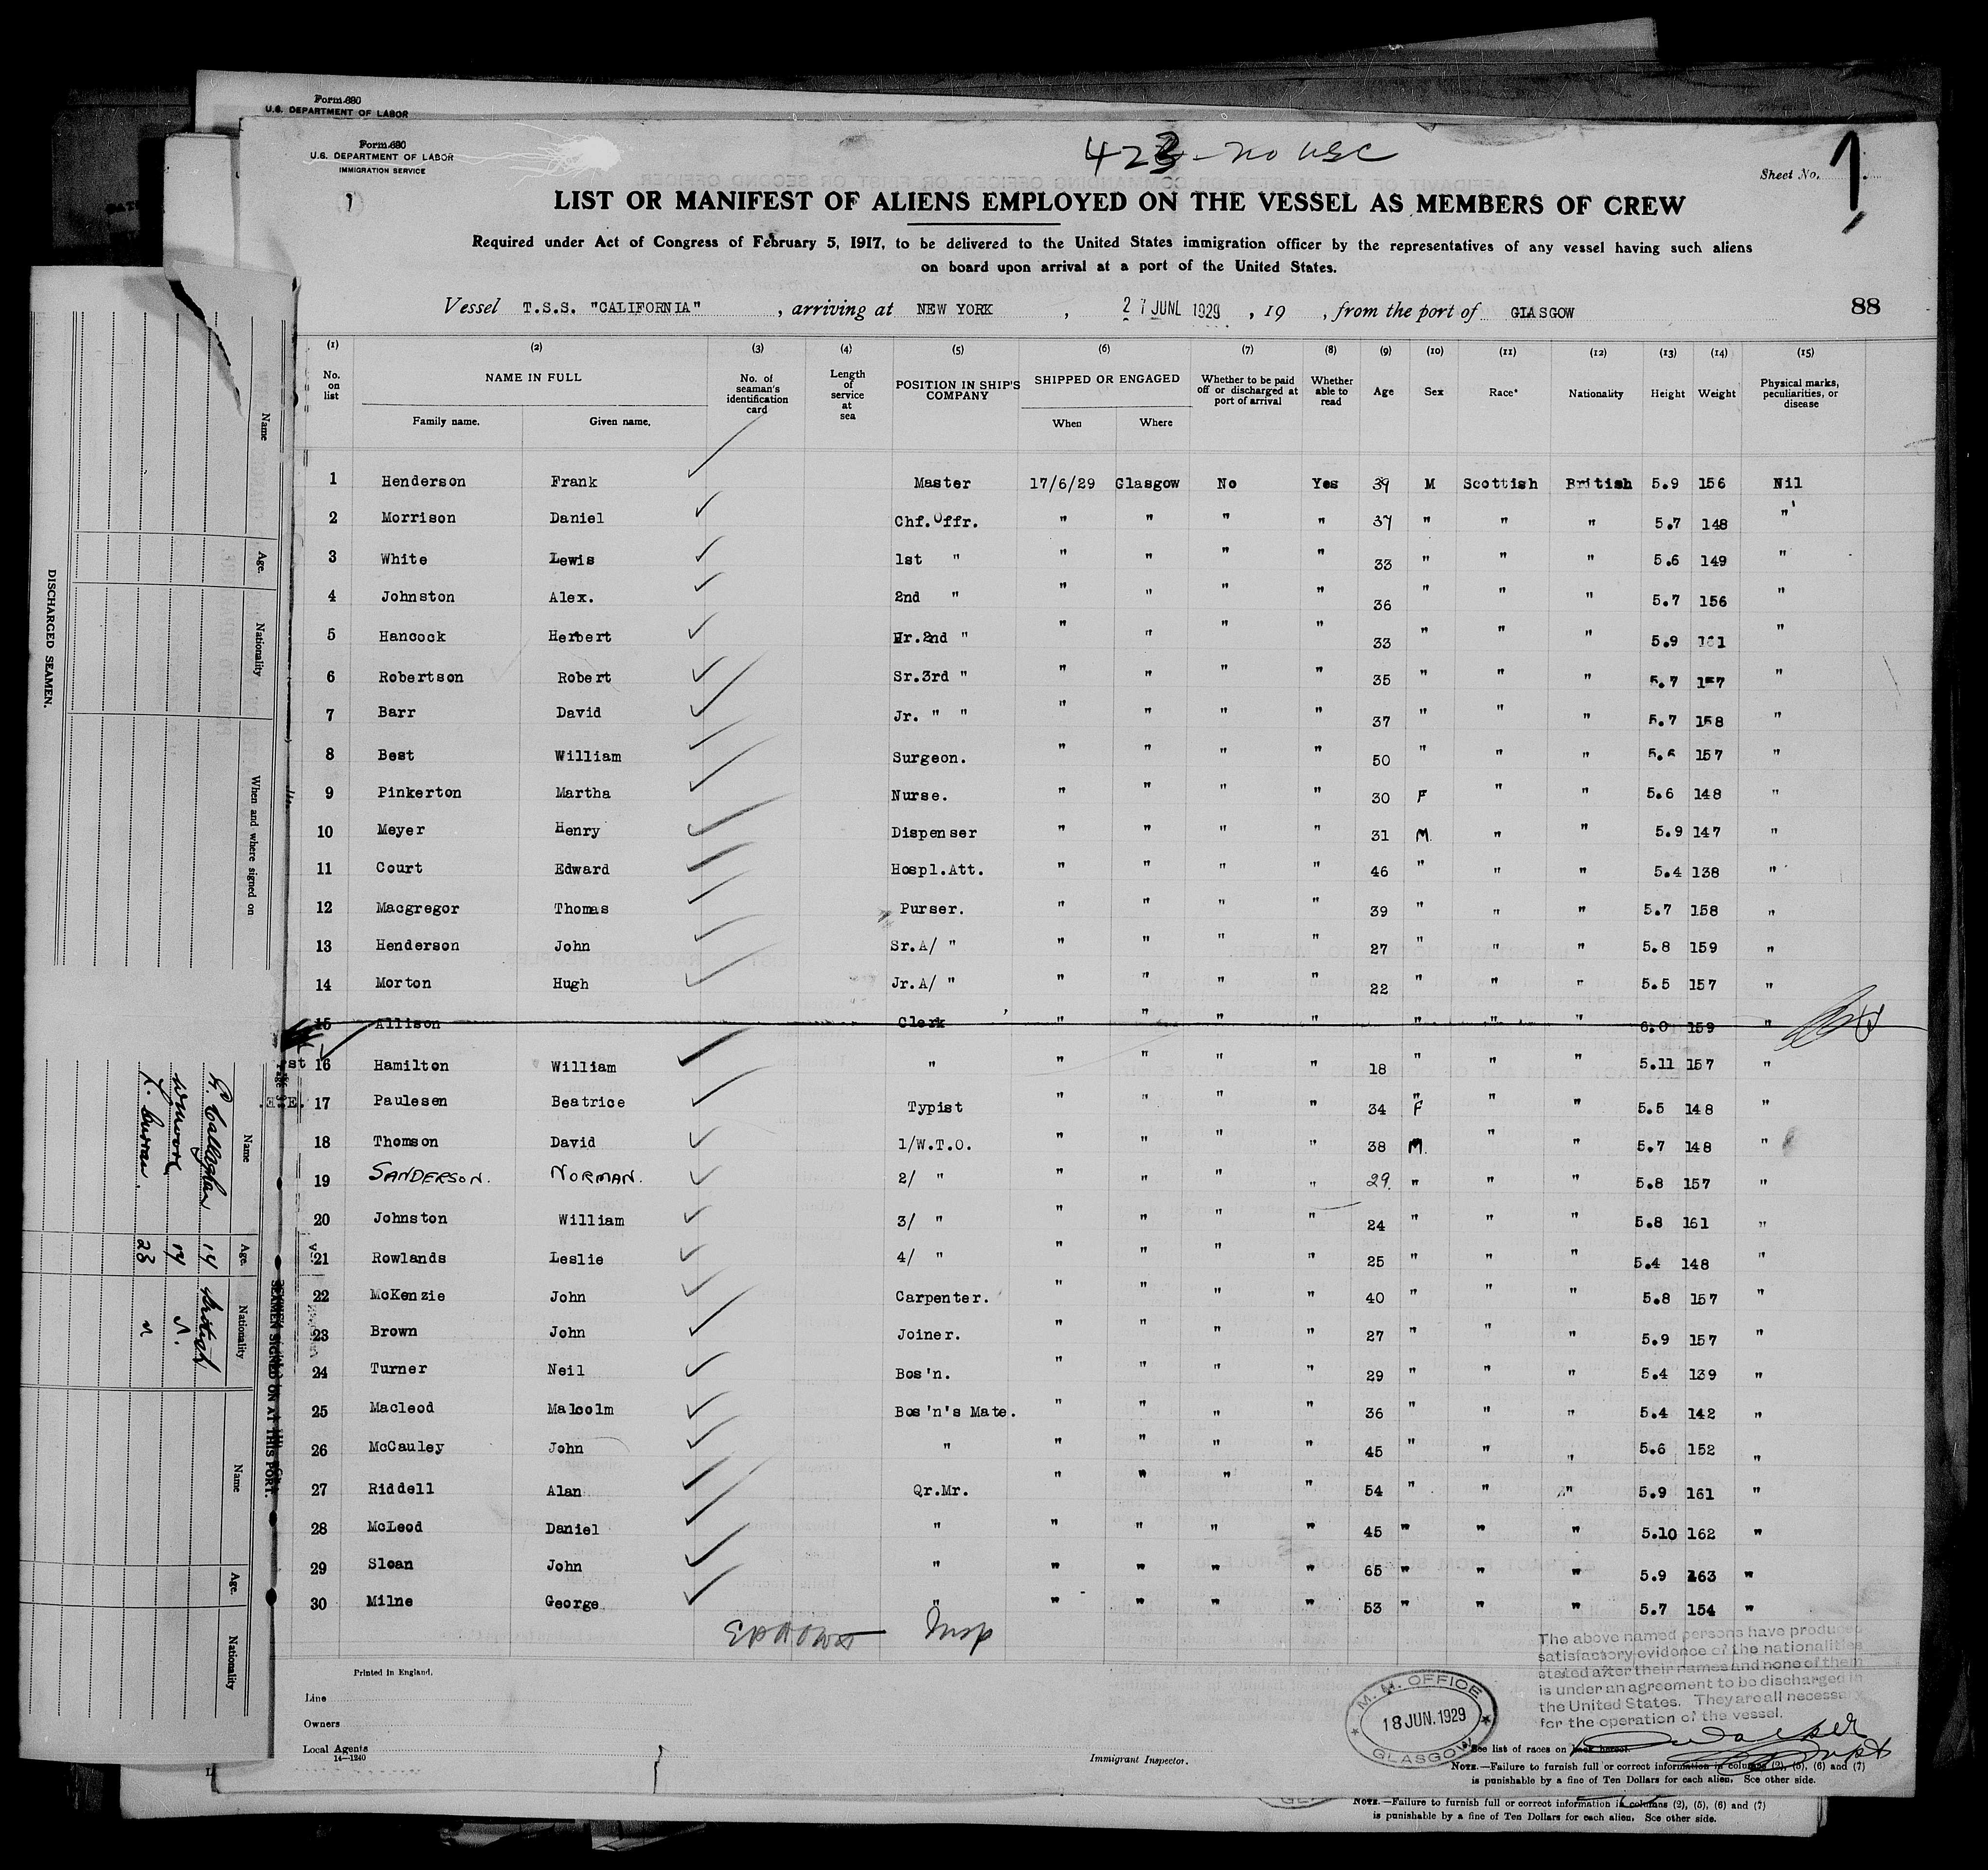 Form 680
U.S. DEPARTMENT OF LABOR
Form 680
U.S. DEPARTMENT OF LABOR
IMMIGRATION SERVICE
423 - no USC
Sheet No. 1
LIST OR MANIFEST OF ALIENS EMPLOYED ON THE VESSEL AS MEMBERS OF CREW
Required under Act of Congress of February 5, 1917, to be delivered to the United States immigration officer by the representatives of any vessel having such aliens
on board upon arrival at a port of the United States.
Vessel T.S.S. "CALIFORNIA" , arriving at NEW YORK , 27 JUNE 1929 , 19 , from the port of GLASGOW 88
(1) (2) (3) (4) (5) (6) (7) (8) (9) (10) (11) (12) (13) (14) (15)
No. on list NAME IN FULL Family name. Given name. No. of seaman's identification card Length of service at sea POSITION IN SHIP'S COMPANY SHIPPED OR ENGAGED When Where Whether to be paid off or discharged at port of arrival Whether able to read Age Sex Race* Nationality Height Weight Physical marks, peculiarities, or disease
1 Henderson Frank Master 17/6/29 Glasgow No Yes 39 M Scottish British 5.9 156 Nil
2 Morrison Daniel Chf.Offr. " " " " 37 " " " 5.7 148 "
3 White Lewis 1st " " " " " 33 " " " 5.6 149 "
4 Johnston Alex. 2nd " " " " " 36 " " " 5.7 156 "
5 Hancock Herbert Jr.2nd " " " " " 33 " " " 5.9 "
6 Robertson Robert Sr.3rd " " " " " 35 " " " 5.7 157 "
7 Barr David Jr. " " " " " " 37 " " " 5.7 158 "
8 Best William Surgeon. " " " " 50 " " " 5.6 157 "
9 Pinkerton Martha Nurse. " " " " 30 F " " 5.6 148 "
10 Meyer Henry Dispenser " " " " 31 M " " 5.9 147 "
11 Court Edward Hospl.Att. " " " " 46 " " " 5.4 138 "
12 Macgregor Thomas Purser. " " " " 39 " " " 5.7 158 "
13 Henderson John Sr.A/ " " " " " 27 " " " 5.8 159 "
14 Morton Hugh Jr.A/ " " " " " 22 " " " 5.5 157 "
15 Allison Clerk " " " " " " " 6.0 159 "
16 Hamilton William " " " " " 18 " " " 5.11 157 "
17 Paulesen Beatrice Typist " " " " 34 F " " 5.5 148 "
18 Thomson David 1/W.T.O. " " " " 38 M " " 5.7 148 "
19 SANDERSON. NORMAN. 2/ " " " " " 29. " " " 5.8 157 "
20 Johnston William 3/ " " " " " 24 " " " 5.8 161 "
21 Rowlands Leslie 4/ " " " " " 25 " " " 5.4 148 "
22 McKenzie John Carpenter. " " " " 40 " " " 5.8 157 "
23 Brown John Joiner. " " " " 27 " " " 5.9 157 "
24 Turner Neil Bos'n. " " " " 29 " " " 5.4 139 "
25 Macleod Malcolm Bos'n's Mate. " " " " 36 " " " 5.4 142 "
26 McCauley John " " " " " 45 " " " 5.6 152 "
27 Riddell Alan Qr.Mr. " " " " 54 " " " 5.9 161 "
28 McLeod Daniel " " " " " 45 " " " 5.10 162 "
29 Sloan John " " " " " 65 " " " 5.9 163 "
30 Milne George " " " " " 53 " " " 5.7 154 "
Insp
The above named persons have produced
satisfactory evidence of the nationalities
stated after their names and none of them
is under an agreement to be discharged in
the United States. They are all necessary
for the operation of the vessel.
Printed in England.
Line
Owners
Local Agents
14—1240
Immigrant Inspector.
M. H. OFFICE
18 JUN. 1929
GLASGOW
*See list of races on back hereof.
NOTE.—Failure to furnish full or correct information in columns (2), (5), (6) and (7)
is punishable by a fine of Ten Dollars for each alien. See other side.
NOTE.—Failure to furnish full or correct information in columns (2), (5), (6) and (7)
is punishable by a fine of Ten Dollars for each alien. See other side.
DISCHARGED SEAMEN.
Name Age. Nationality When and where signed on
SEAMEN SIGNED ON AT THIS PORT.
Name Age. Nationality Name Age. Nationality
Callaghan 14 British
17 "
Curran 23 "